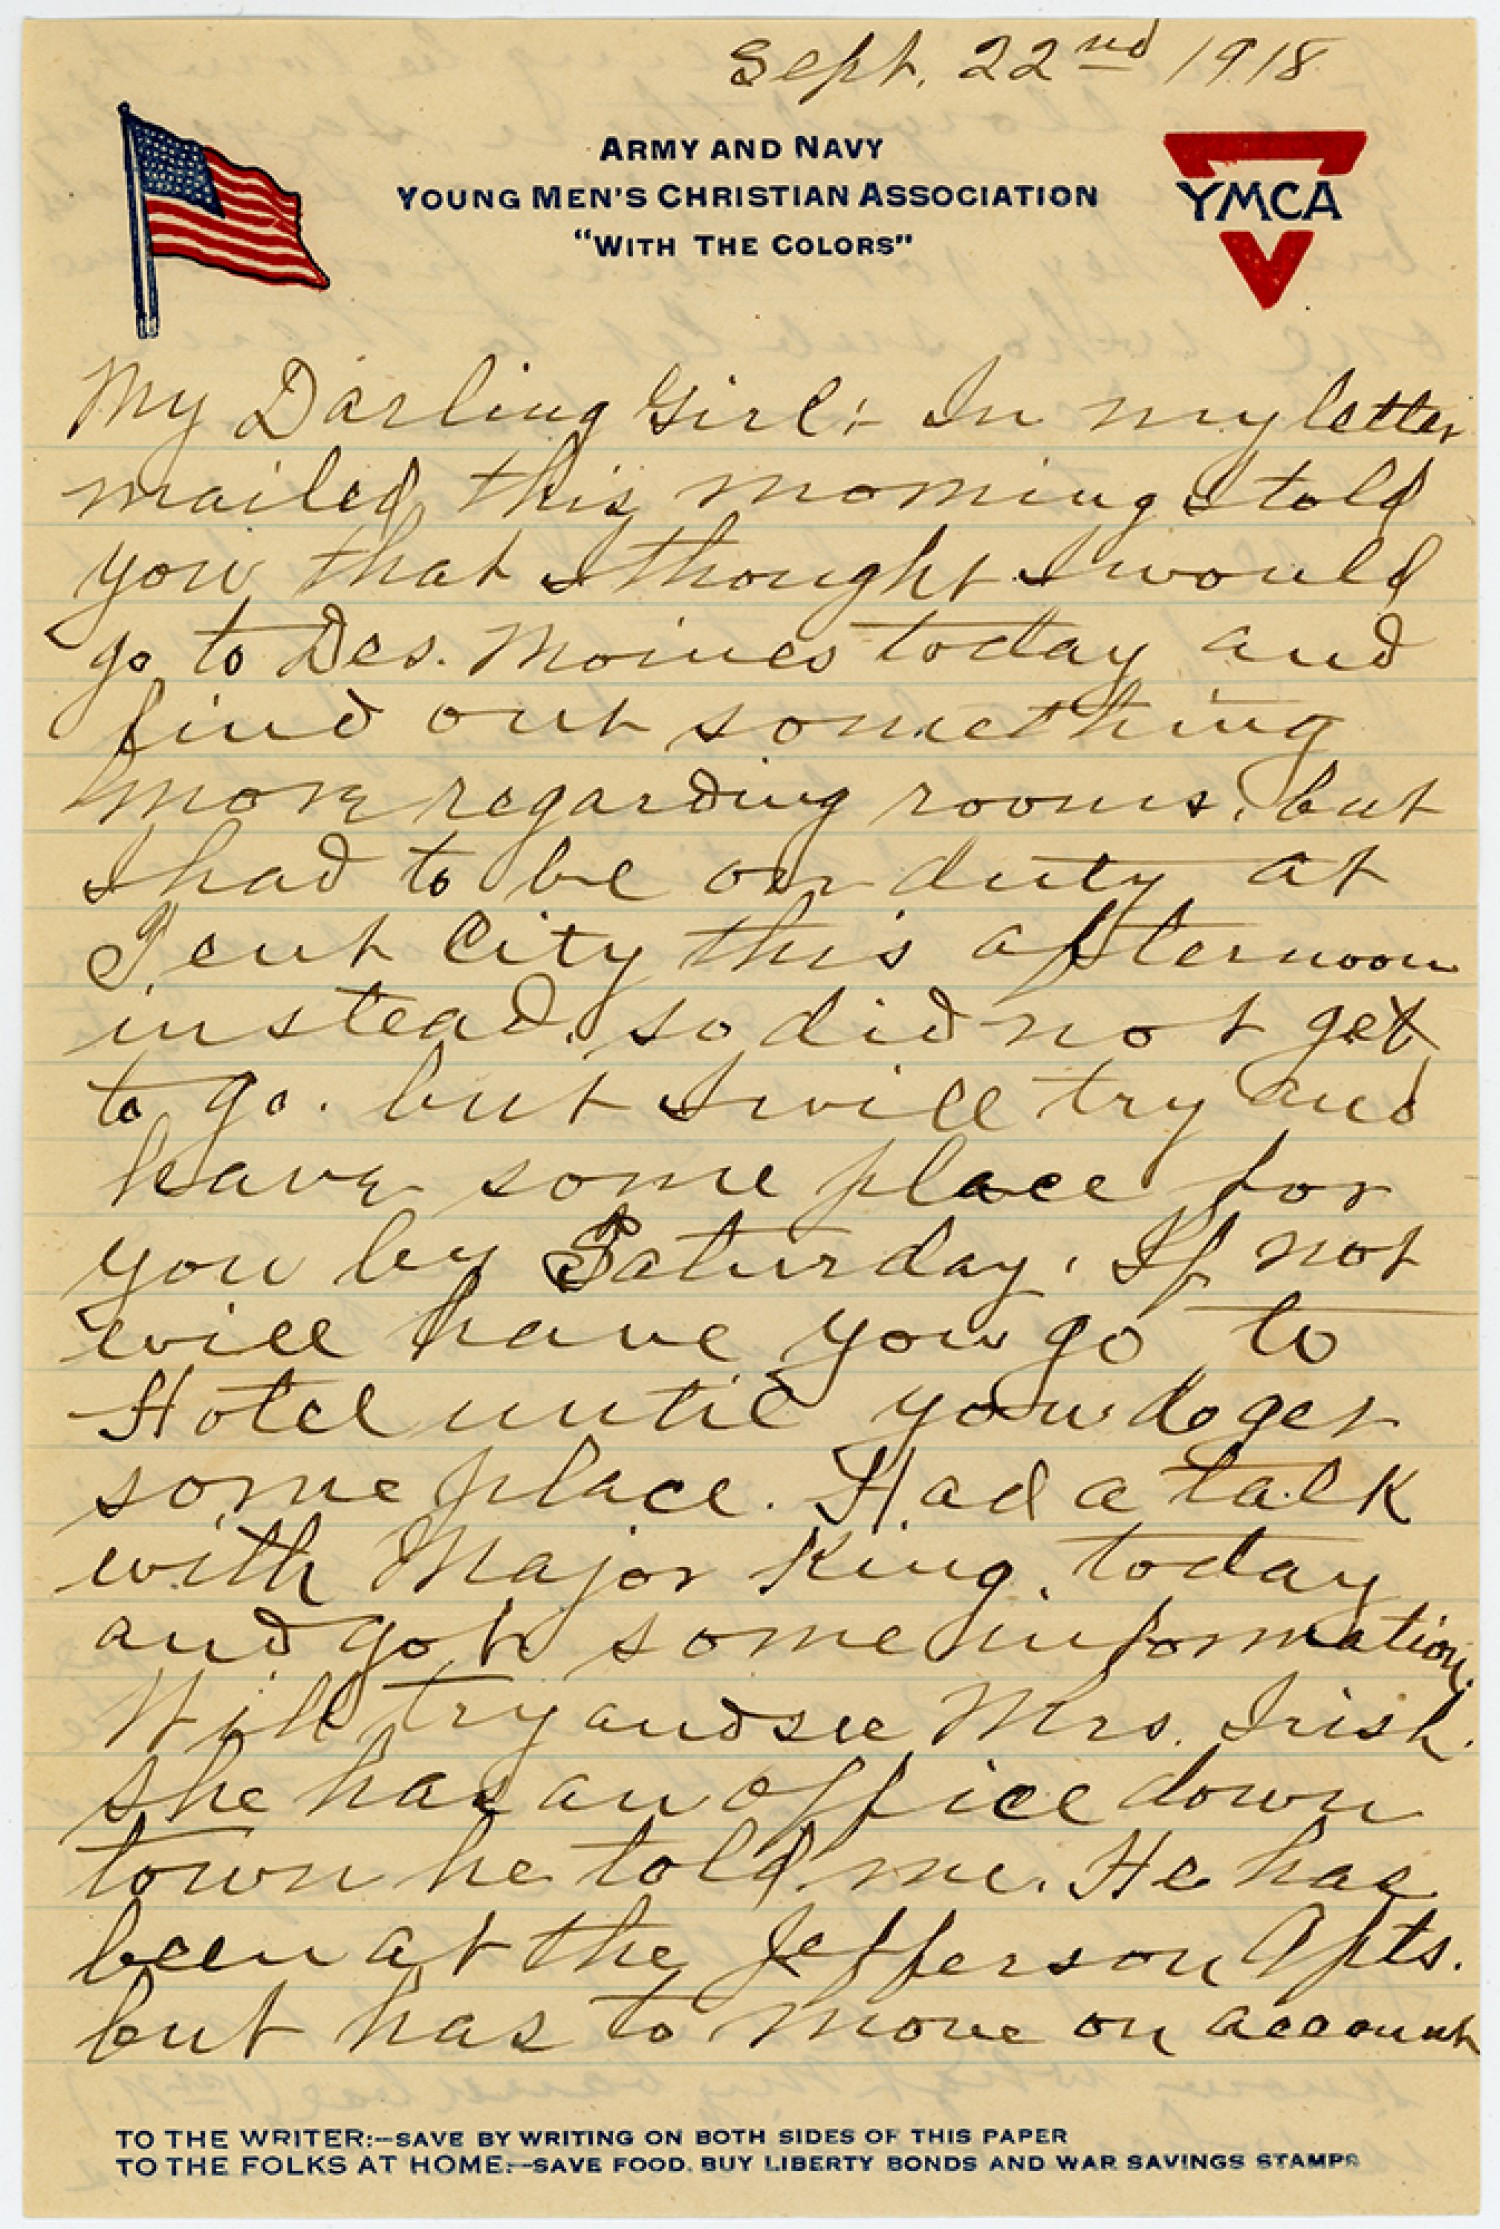 Sept. 22nd 1918
ARMY AND NAVY
YOUNG MEN'S CHRISTIAN ASSOCIATION
"WITH THE COLORS"
YMCA
My Darling Girl:- In my letter
mailed this morning I told
you that I thought I would
go to Des. Moines today and
find out something
more regarding rooms, but
I had to be on duty at
Tent City this afternoon
instead, so did not get
to go. but I will try and
have some place for
you by Saturday. If not
will have you go to
Hotel until you do get
some place. Had a talk
with Major King, today
and got some information.
Will try and see Mrs. Irish.
she has an office down
town he told me. He has
been at the Jefferson Apts.
but has to move on account
TO THE WRITER:—SAVE BY WRITING ON BOTH SIDES OF THIS PAPER
TO THE FOLKS AT HOME:—SAVE FOOD, BUY LIBERTY BONDS AND WAR SAVINGS STAMPS